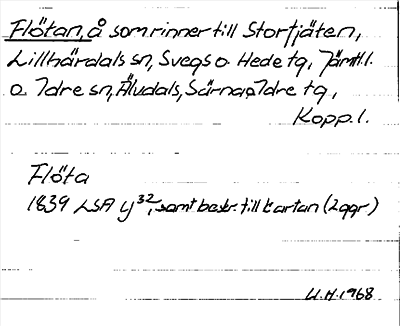 Flötan, å som rinner till Storfjäten,
Lillhärdals sn, Svegs o. Hede tg, Jämtl.l.
o. Idre sn, Älvdals, Särna o Idre tg,
Kopp. l.
Flöta
1839 LSA y 32, samt beskr. till kartan (2 ggr)
U.H. 1968